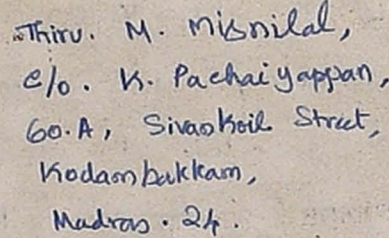 Thiru. M. Misnilal,
c/o. K. Pachaiyappan,
60.A, Sivan Koil Street,
Kodambakkam,
Madras. 24.